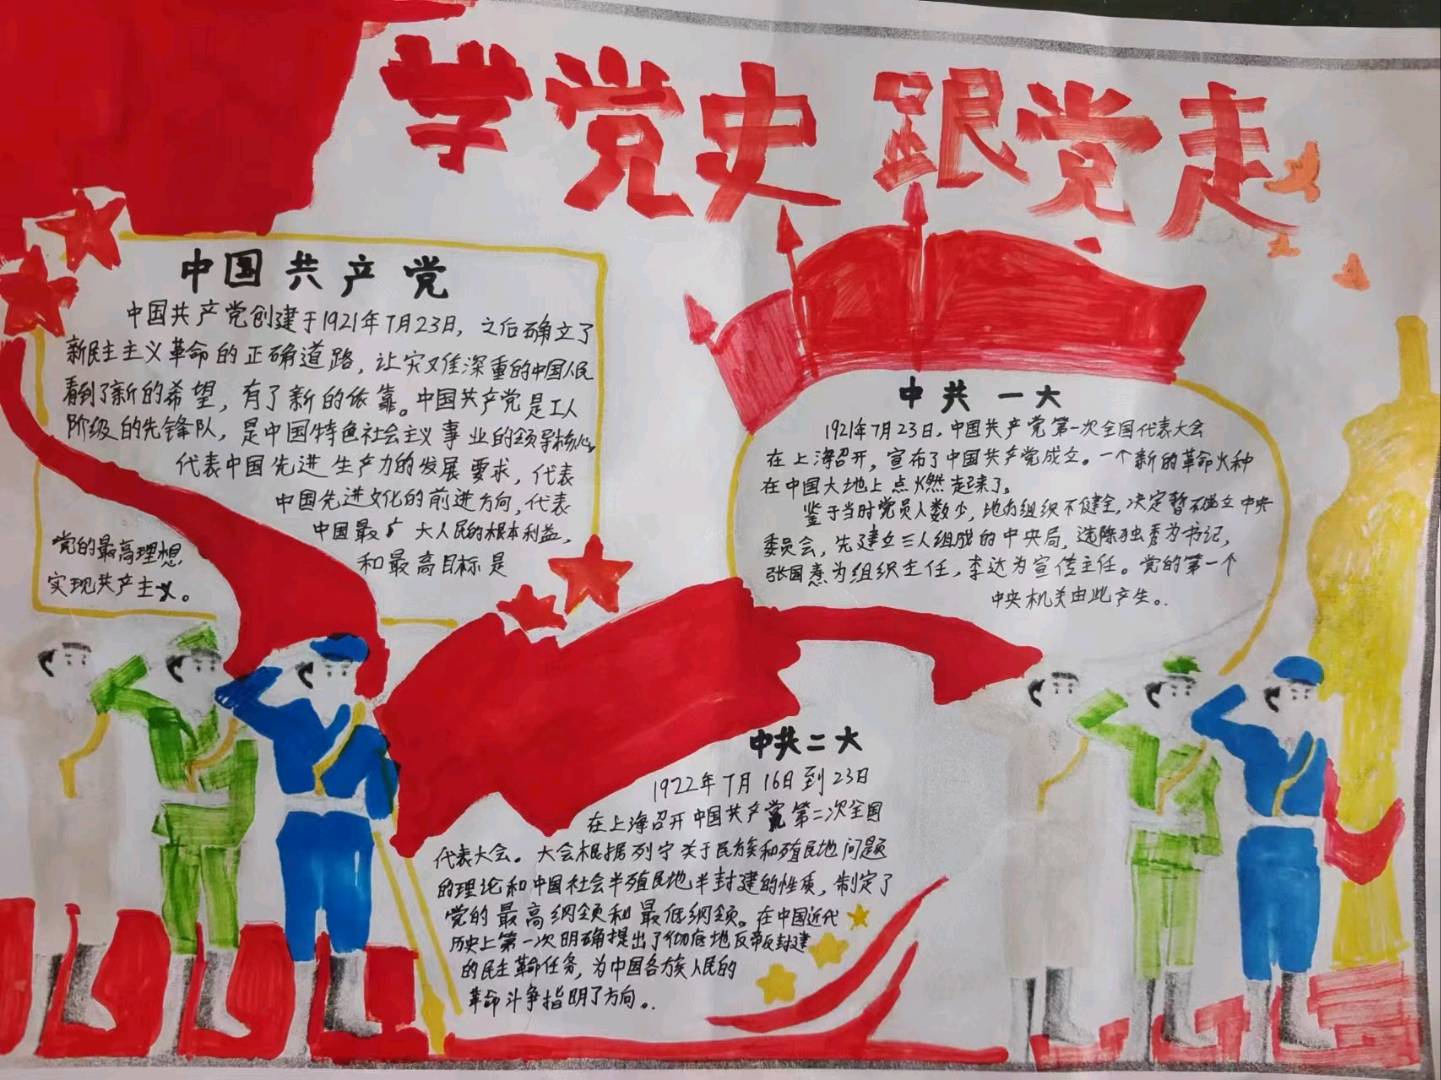 学党史 跟党走
中国共产党
中国共产党创建于1921年7月23日，之后确立了
新民主主义革命的正确道路，让灾难深重的中国人民
看到了新的希望，有了新的依靠。中国共产党是工人
阶级的先锋队，是中国特色社会主义事业的领导核心，
代表中国先进生产力的发展要求，代表
中国先进文化的前进方向，代表
中国最广大人民的根本利益，
党的最高理想
和最高目标是
实现共产主义。
中共一大
1921年7月23日，中国共产党第一次全国代表大会
在上海召开，宣布了中国共产党成立。一个新的革命火种
在中国大地上点燃起来了。
鉴于当时党员人数少，地方组织不健全，决定暂不成立中央
委员会，先建立三人组成的中央局，选陈独秀为书记，
张国焘为组织主任，李达为宣传主任。党的第一个
中央机关由此产生。
中共二大
1922年7月16日到23日
在上海召开中国共产党第二次全国
代表大会。大会根据列宁关于民族和殖民地问题
的理论和中国社会半殖民地半封建的性质，制定了
党的最高纲领和最低纲领。在中国近代
历史上第一次明确提出了彻底地反帝反封建
的民主革命任务，为中国各族人民的
革命斗争指明了方向。